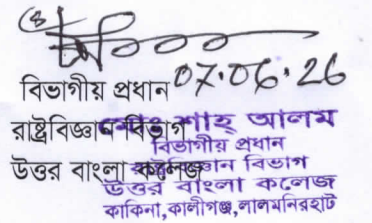 (8)
07.06.26
বিভাগীয় প্রধান
রাষ্ট্রবিজ্ঞান বিভাগ
উত্তর বাংলা কলেজ
শাহ্ আলম
বিভাগীয় প্রধান
রাষ্ট্রবিজ্ঞান বিভাগ
উত্তর বাংলা কলেজ
কাকিনা,কালীগঞ্জ,লালমনিরহাট